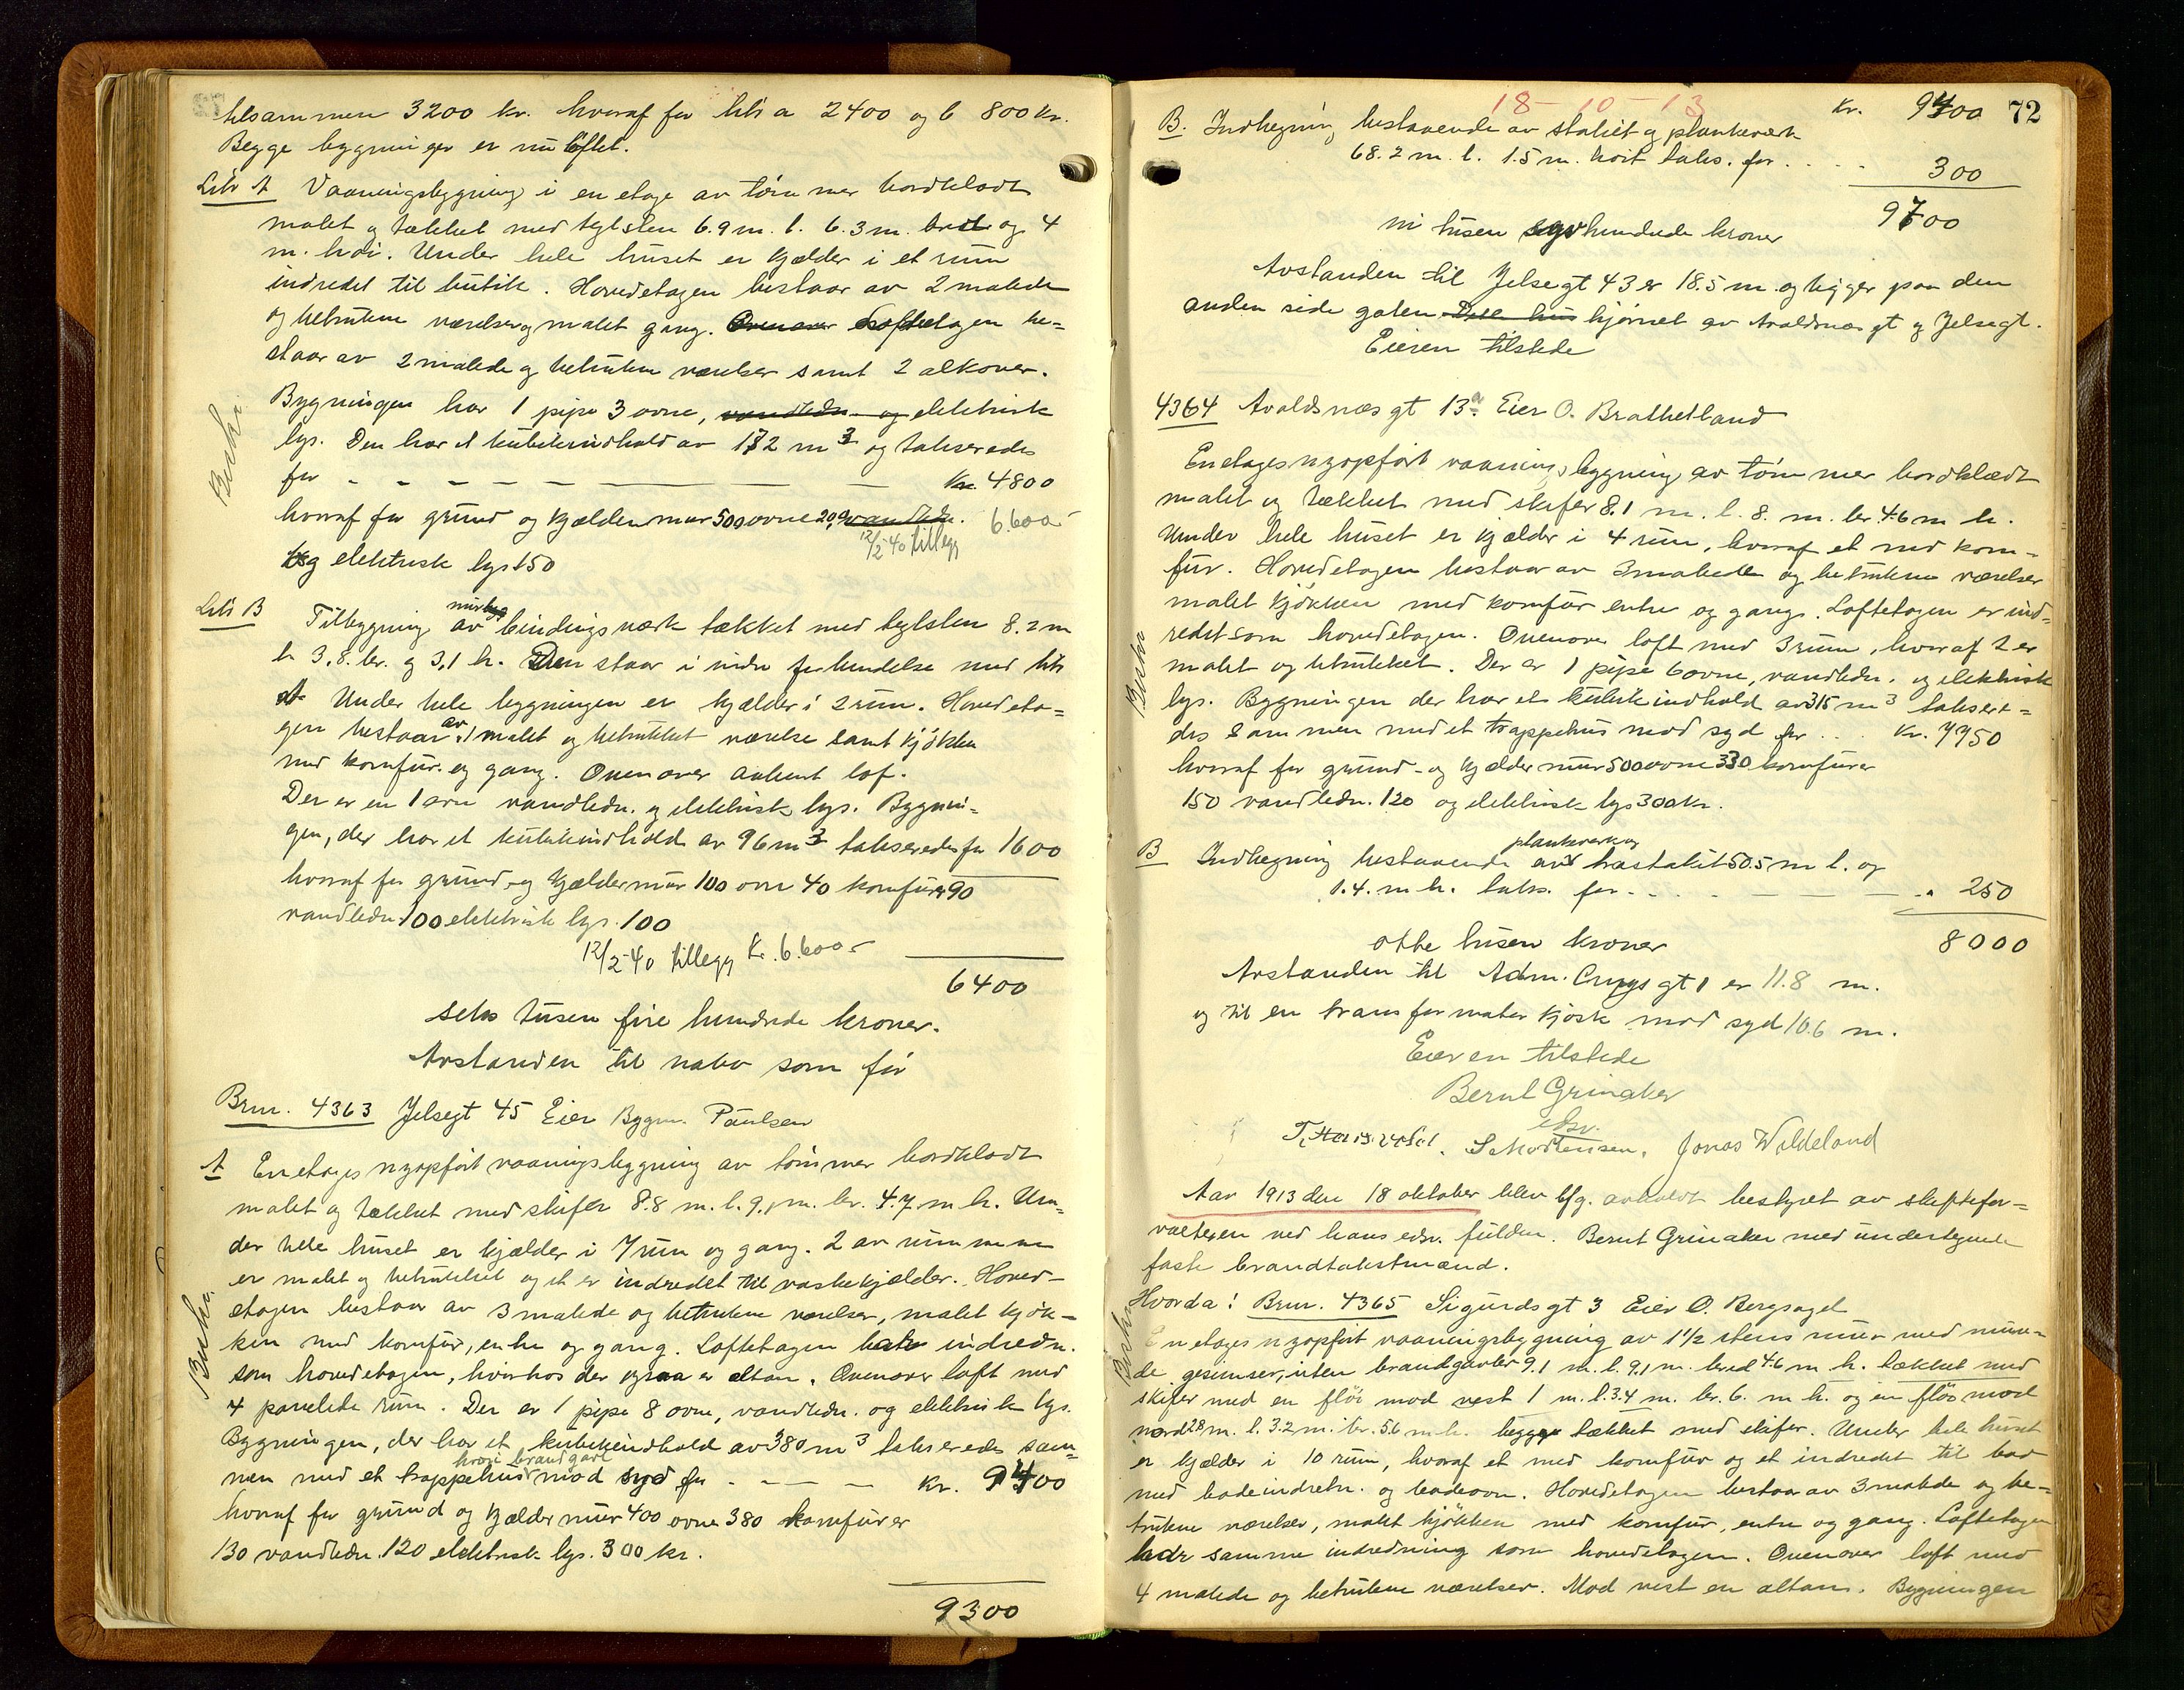 tilsammen 3200 kr. hvoraf for litr a 2400 og b 800 kr.
Begge bygninger er nu löftet.
Litr A Vaaningsbygning i en etage av tømmer bordklædt
malet og tækket med teglsten 6.9 m. l. 6.3 m. bred og 4
m. höi. Under hele huset er kjælder i et rum
indredet til butik. Hovedetagen bestaar av 2 malede
og betrukne værelser og malet gang. Ovenover Loftetagen be=
staar av 2 malede og betrukne værelser samt 2 alkover.
Bygningen har 1 pipe 3 ovne, vandledn. og elektrisk
lys. Den har et kubikindhold av 172 m3 og takseredes
for - - - - - Kr. 4800
hvoraf for grund og kjældermur 500 ovne 200 vandledn. 6.600-
12/2-40 tillegg
og elektrisk lys 150
Litr B Tilbygning av murbyg bindingsværk tækket med teglsten 8.2 m
l. 3.8. br. og 3,1 h. Den staar i indre forbindelse med litr
A Under hele bygningen er kjælder i 2 rum. Hovedeta=
gen bestaar av 1 malet og betrukket værelse samt kjökken
med komfur og gang. Ovenover aapent lof.
Der er en 1 ovn vandledn. og elektrisk lys. Bygnin=
gen, der har et kubikindhold av 96 m3 takseredes for 1600
hvoraf for grund og kjældermur 100 ovn 40 komfur 90
vandledn. 100 elektrisk lys. 100
12/2-40 tillegg Kr. 6.600-
6400
seks tusen fire hundrede kroner.
Avstanden til nabo som för
Brnr. 4363 Jelsegt 45 Eier Bygm. Paulsen
A En etages nyopfört vaaningsbygning av tömmer bordklædt
malet og tækket med skifer 8.8 m. l. 9.1 m. br. 4.7 m h. Un=
der hele huset er kjælder i 7 rum og gang. 2 av rummene
er malet og betrukket og et er indredet til vaskekjælder. Hoved=
etagen bestaar av 3 malede og betrukne værelser, malet kjök=
ken med komfur, entre og gang. Loftetagen indredn.
som hovedetagen, hvorhos der ogsaa er altan. Ovenover loft med
4 panelede rum. Der er 1 pipe 8 ovne, vandledn. og elektrisk lys.
Bygningen, der har et kubikindhold av 380 m3 takseredes sam=
men med et trappehus hvori brandgavl mod syd for - - - kr. 9400
hvoraf for grund og kjældermur 400 ovne 380 komfurer
130 vandledn. 120 elektrisk lys. 300 kr.
9300
Bischr.
Bischr.
18-10-13
Kr. 9400 72
B. Indhegning bestaaende av stakit og plankeværk
68.2 m. l. 1.5 m. höit taks. for . . . . 300
9700
ni tusen syv hundrede kroner
Avstanden til Jelsegt 43 er 18.5 m. og ligger paa den
anden side gaten hjørnet av Avaldsnæsgt og Jelsegt.
Eieren tilstede
4364 Avaldsnæs gt 13a. Eier O. Brathetland
En etages nyopfört vaaningsbygning av tömmer bordklædt
malet og tækket med skifer 8.1 m. l. 8. m. br. 4.6 m h.
Under hele huset er kjælder i 4 rum, hvoraf et med kom=
fur. Hovedetagen bestaar av 3 malede og betrukne værelser
malet kjökken med komfur entre og gang. Loftetagen er ind=
redet som hovedetagen. Ovenover loft med 3 rum, hvoraf 2 er
malet og betrukket. Der er 1 pipe 6 ovne, vandledn. og elektrisk
lys. Bygningen der har et kubikindhold av 315 m3 taksere=
des sammen med et trappehus mod syd for . . . Kr. 7750
hvoraf for grund- og kjældermur 500 ovne 330 komfurer
150 vandledn. 120 og elektrisk lys 300 kr.
B Indhegning bestaaende av plankverk og stakit 50.5 m l. og
1.4. m h. taks. for - . . - - " 250
otte tusen kroner 8000
Avstanden til Adm. Cruys gt 1 er 11.8 m.
og til en transformator kjosk mod syd 10.6 m.
Eieren tilstede
Bernt Grinaker
edsv.
S. Mortensen. Jonas Wildeland
Aar 1913 den 18 oktober blev bfg. avholdt bestyret av skiftefor=
valteren ved hans edsv. fuldm. Bernt Grinaker med undertegnede
faste brandtakstmænd.
Hvorda: Brnr. 4365 Sigurds gt 3 Eier O. Bergsagel
En etages nyopfört vaaningsbygning av 1 1/2 stens mur med mure=
de gesimser, uten brandgavler 9.1 m. l. 9.1 m. bred 4.6 m h. tækket med
skifer med en flöi mod vest 1 m. l. 3.4 m. br. 6. m h. og en flöi mod
nord 2.8 m. l. 3.2 m. br. 5.6 m h. begge tækket med skifer. Under hele huset
er kjælder i 10 rum, hvoraf et med komfur og et indredet til bad
med badeindretn. og badeovn. Hovedetagen bestaar av 3 malede og be=
trukne værelser, malet kjökken med komfur, entre og gang. Loftetagen
har samme indredning som hovedetagen. Ovenover loft med
4 malede og betrukne værelser. Mod vest en altan. Bygningen
Bischr.
Bischr.